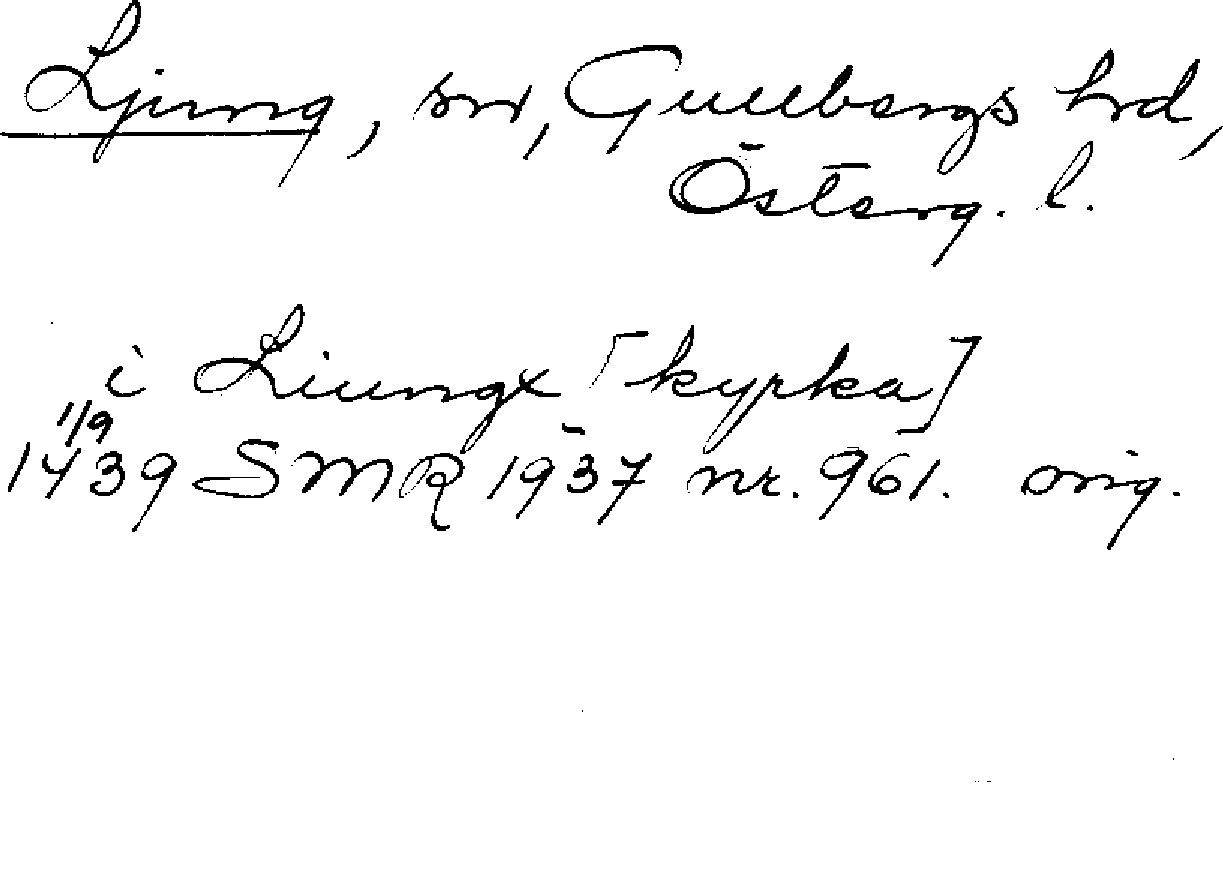 Ljung, sn, Gullbergs hrd,
Österg. l.
i Liungx [kyrka]
1/9
1439 SMR 1937 nr. 961. orig.